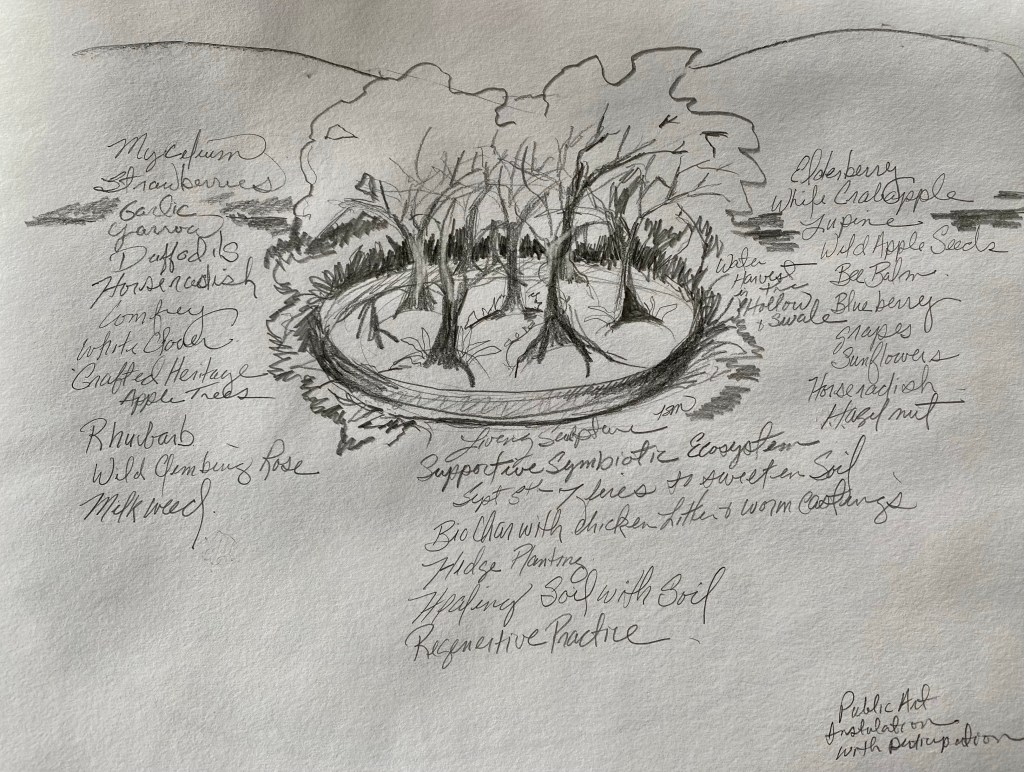 Mycelium
Strawberries
Garlic
Yarrow
Daffodils
Horseradish
Comfrey
White Clover
Grafted Heritage
Apple Trees
Rhubarb
Wild Climbing Rose
Milkweed
Elderberry
White Crabapple
Lupine
Wild Apple Seeds
Bee Balm
Blueberry
Grapes
Sunflowers
Horseradish
Hazil nut
Water
Harvest
Hollow
& Swale
Living Sculpture
Supportive Symbiotic Ecosystem
Sept 5th 7 fires to sweeten Soil
BioChar with chicken Litter & worm Castings
Hedge Planting
Healing Soil with Soil
Regenertive Practice
Public Art
Instulation
with participation